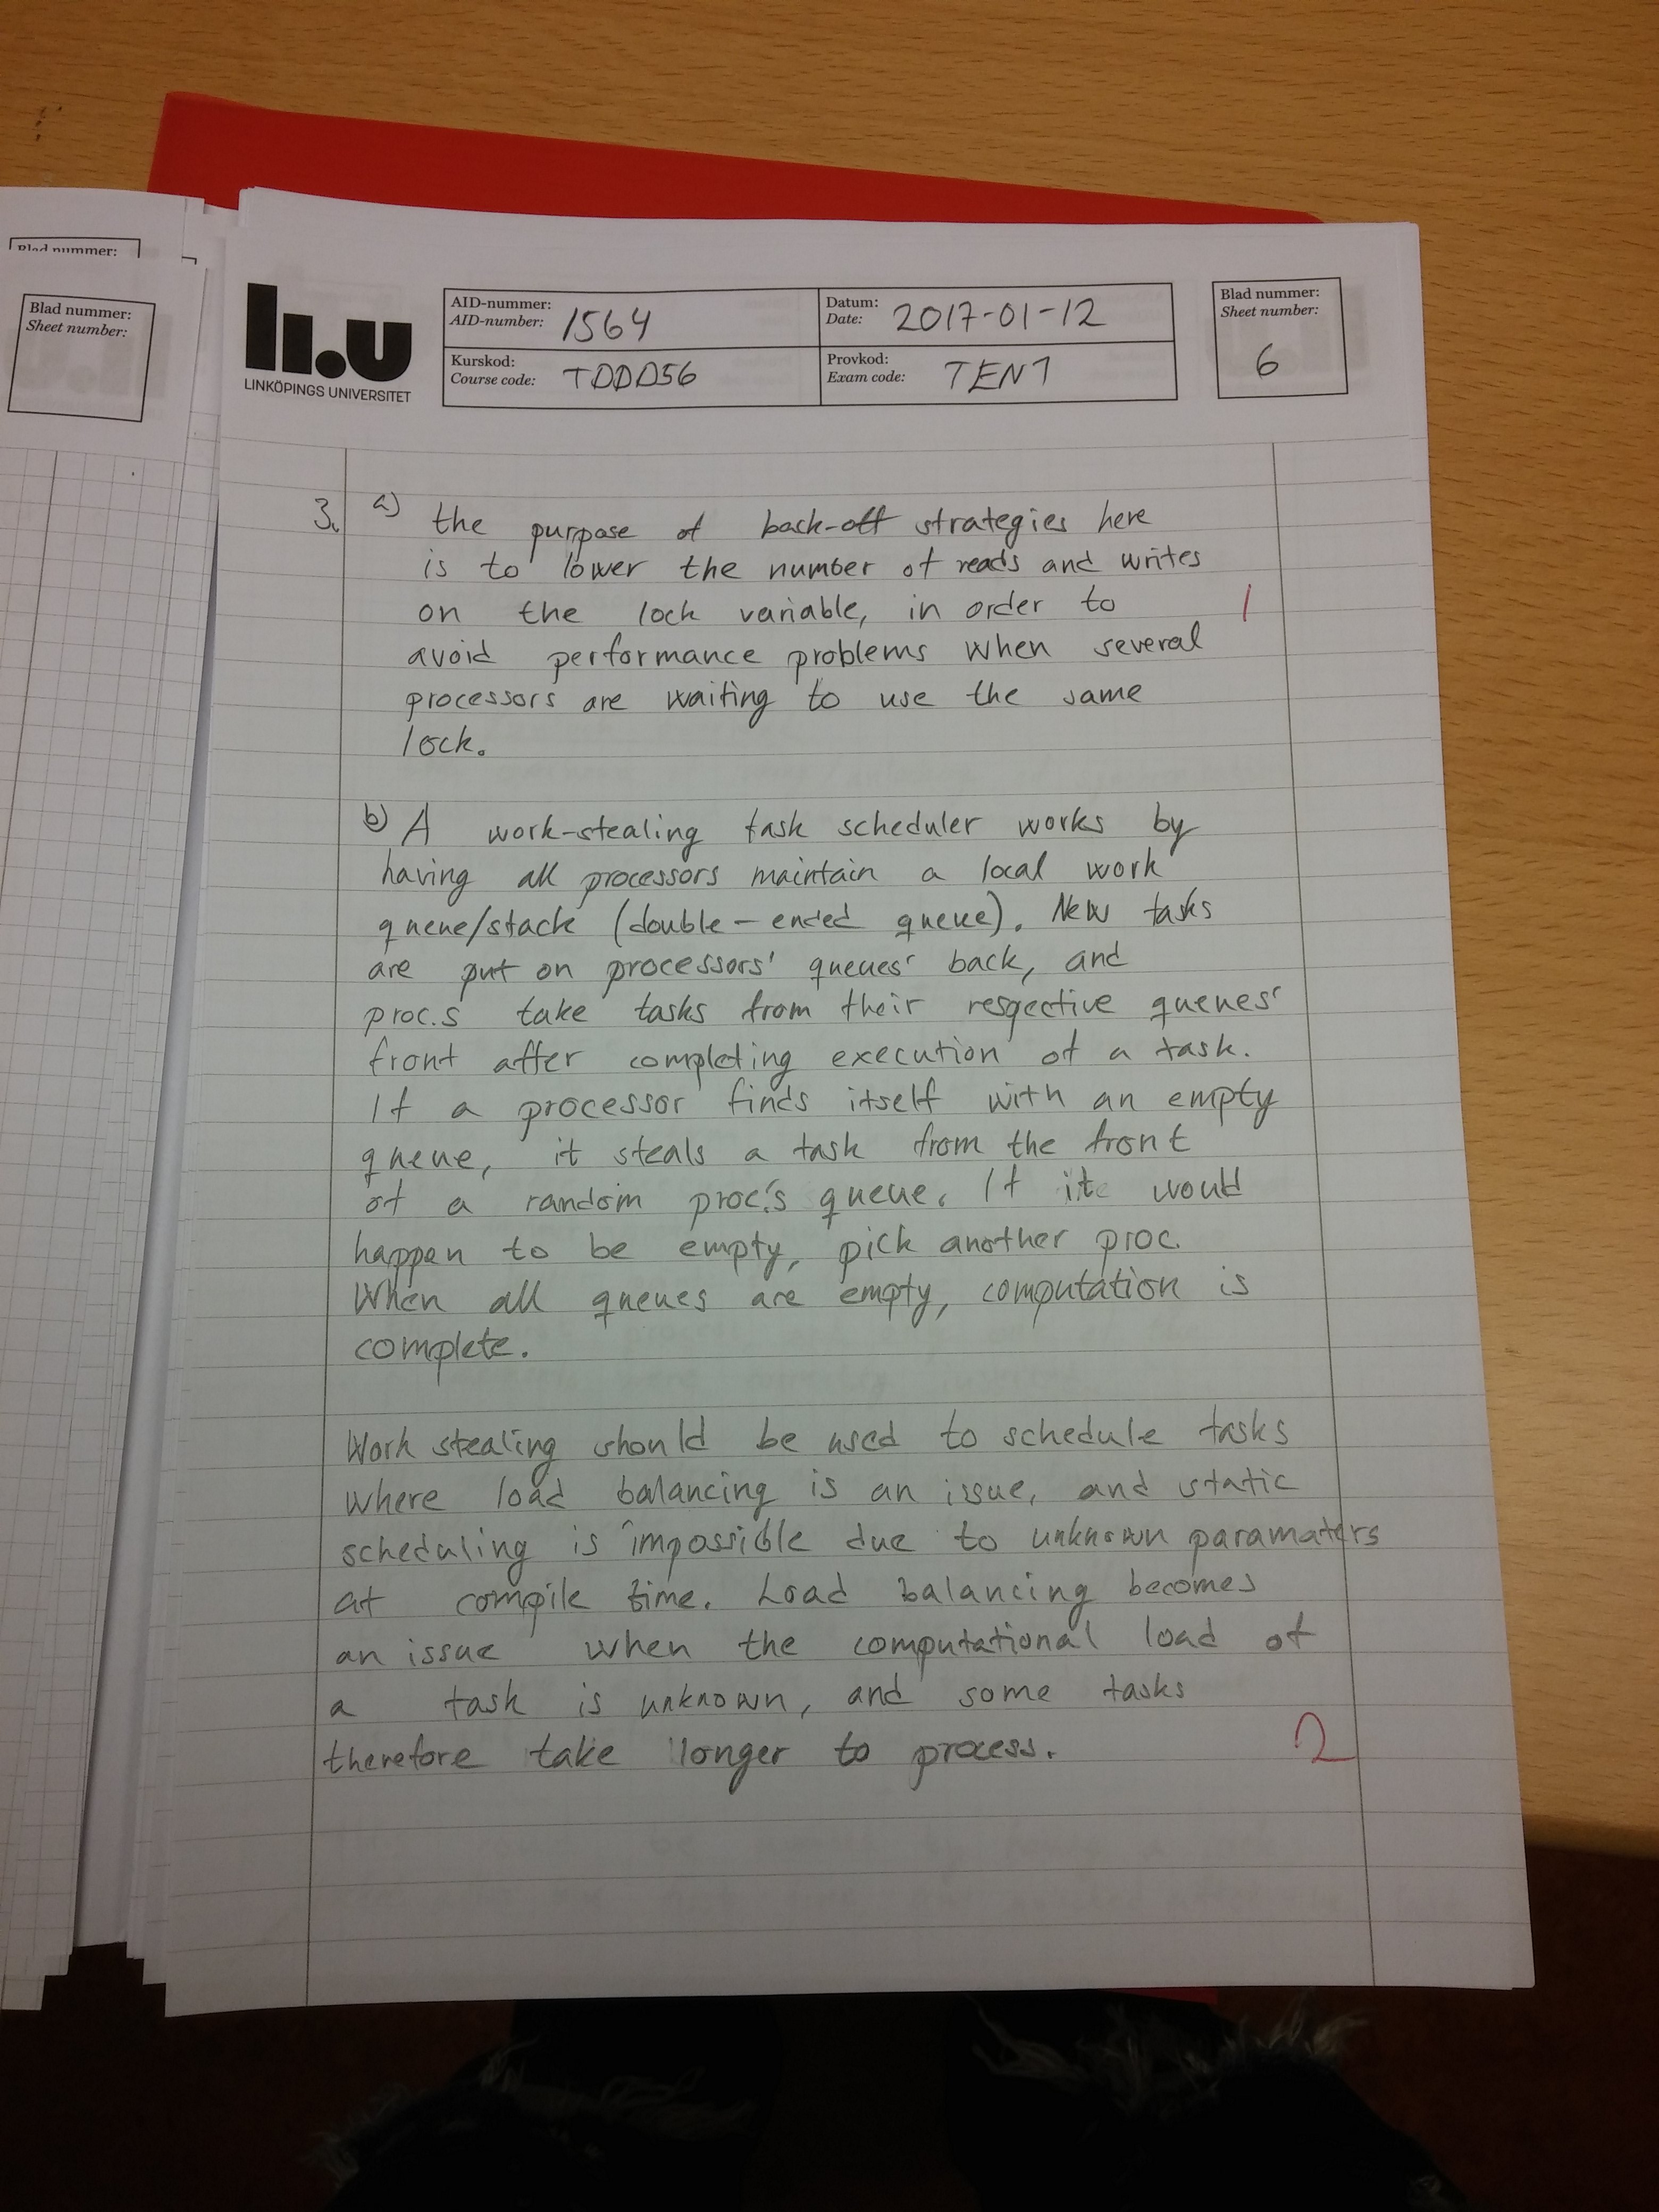 Blad nummer:
Blad nummer:
Sheet number:
li.u
LINKÖPINGS UNIVERSITET
AID-nummer:
AID-number: 1564
Datum:
Date: 2017-01-12
Kurskod:
Course code: TDDD56
Provkod:
Exam code: TEN1
Blad nummer:
Sheet number:
6
3. a) the purpose of back-off strategies here
is to lower the number of reads and writes
on the lock variable, in order to 1
avoid performance problems when several
processors are waiting to use the same
lock.
b) A work-stealing task scheduler works by
having all processors maintain a local work
queue/stack (double-ended queue). New tasks
are put on processors' queues' back, and
proc.s take tasks from their respective queues'
front after completing execution of a task.
If a processor finds itself with an empty
queue, it steals a task from the front
of a random proc.'s queue. If it would
happen to be empty, pick another proc.
When all queues are empty, computation is
complete.
Work stealing should be used to schedule tasks
where load balancing is an issue, and static
scheduling is impossible due to unknown paramaters
at compile time. Load balancing becomes
an issue when the computational load of
a task is unknown, and some tasks
therefore take longer to process. 2